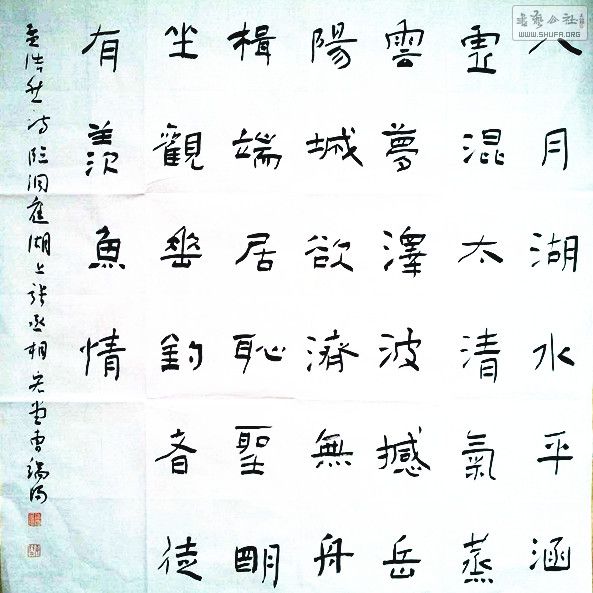 書藝公社
WWW.SHUFA.ORG
八月湖水平涵
虛混太清氣蒸
雲夢澤波撼岳
陽城欲濟無舟
楫端居恥聖明
坐觀垂釣者徒
有羨魚情
孟浩然詩臨洞庭湖上張丞相